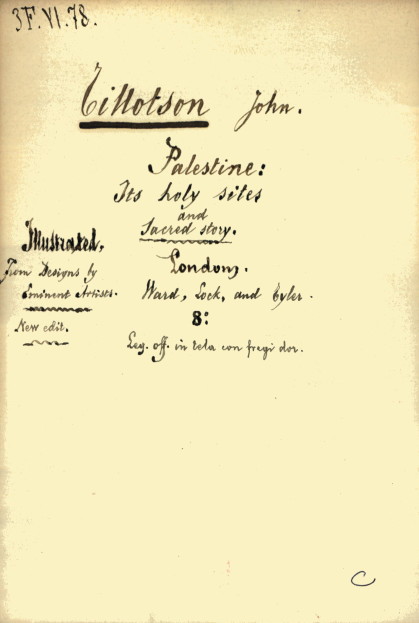 3F.VI.78.
Tillotson John.
Palestine:
Its holy sites
and
Sacred story.
Illustrated,
From Designs by
Eminent Artists.
New edit.
London,.
Ward, Lock, and Tyler.
8:
Leg. off. in tela con fregi dor.
C